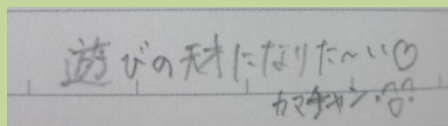 遊びの天才になりた〜い♡
カマチャン